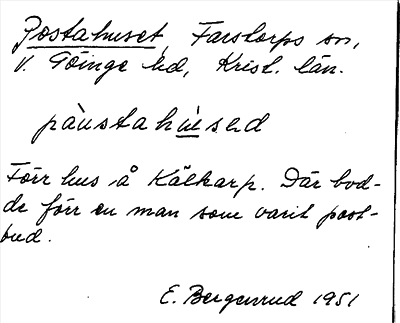 Postahuset, Farstorps sn,
V. Göinge hd, Krist. län.
pàustahù̲səd
Förr hus å Kälkarp. Där bod-
de förr en man som varit post-
bud.
E. Bergenrud 1951